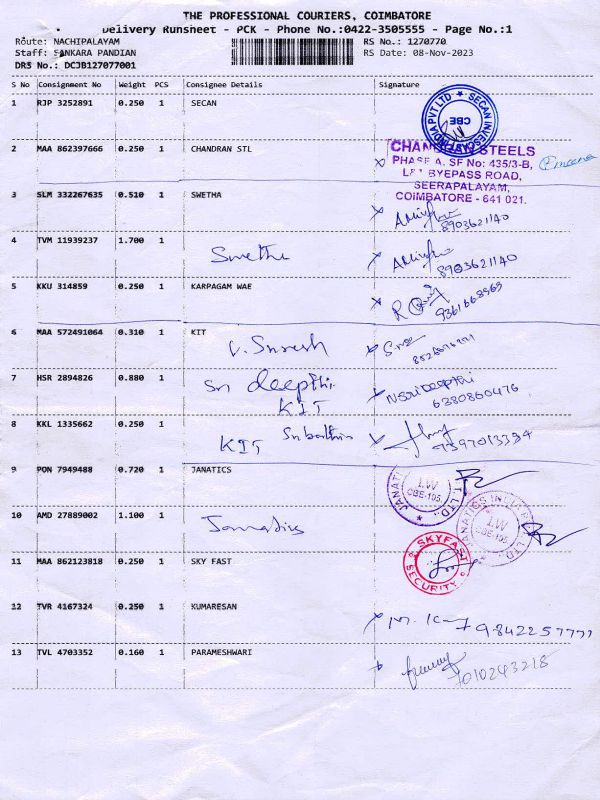 THE PROFESSIONAL COURIERS, COIMBATORE
Delivery Runsheet - PCK - Phone No.:0422-3505555 - Page No.:1
Route: NACHIPALAYAM
RS No.: 1270770
Staff: SANKARA PANDIAN
RS Date: 08-Nov-2023
DRS No.: DCJB127077001
S No Consignment No Weight PCS Consignee Details Signature
1 RJP 3252891 0.250 1 SECAN
SECAN INVESCAST INDIA PVT LTD
CBE
2 MAA 862397666 0.250 1 CHANDRAN STL
STEELS
PHASE A, SF No: 435/3-B,
L&T BYEPASS ROAD,
SEERAPALAYAM,
COIMBATORE - 641 021.
3 SLM 332267635 0.510 1 SWETHA
8903621140
4 TVM 11939237 1.700 1 Swetha
8903621140
5 KKU 314859 0.250 1 KARPAGAM WAE
9361668969
6 MAA 572491064 0.310 1 KIT
V. Suresh
7 HSR 2894826 0.880 1 Sri deepthi
KIT
N Sri Deepthi
6380860476
8 KKL 1335662 0.250 1 KIT
9397013334
9 PON 7949488 0.720 1 JANATICS
I.W
CBE-105
10 AMD 27889002 1.100 1 Janatics
JANATICS INDIA P. LTD
I.W
CBE-105
11 MAA 862123818 0.250 1 SKY FAST
SKYFAST
SECURITY
12 TVR 4167324 0.250 1 KUMARESAN
9842257777
13 TVL 4703352 0.160 1 PARAMESHWARI
7010243218